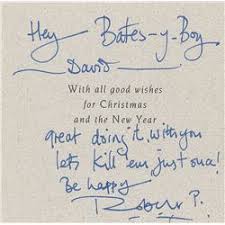 Hey Bates-y-Boy
David
With all good wishes
for Christmas
and the New Year
great doing it with you
lets kill 'em just once!
Be happy
Robert P.